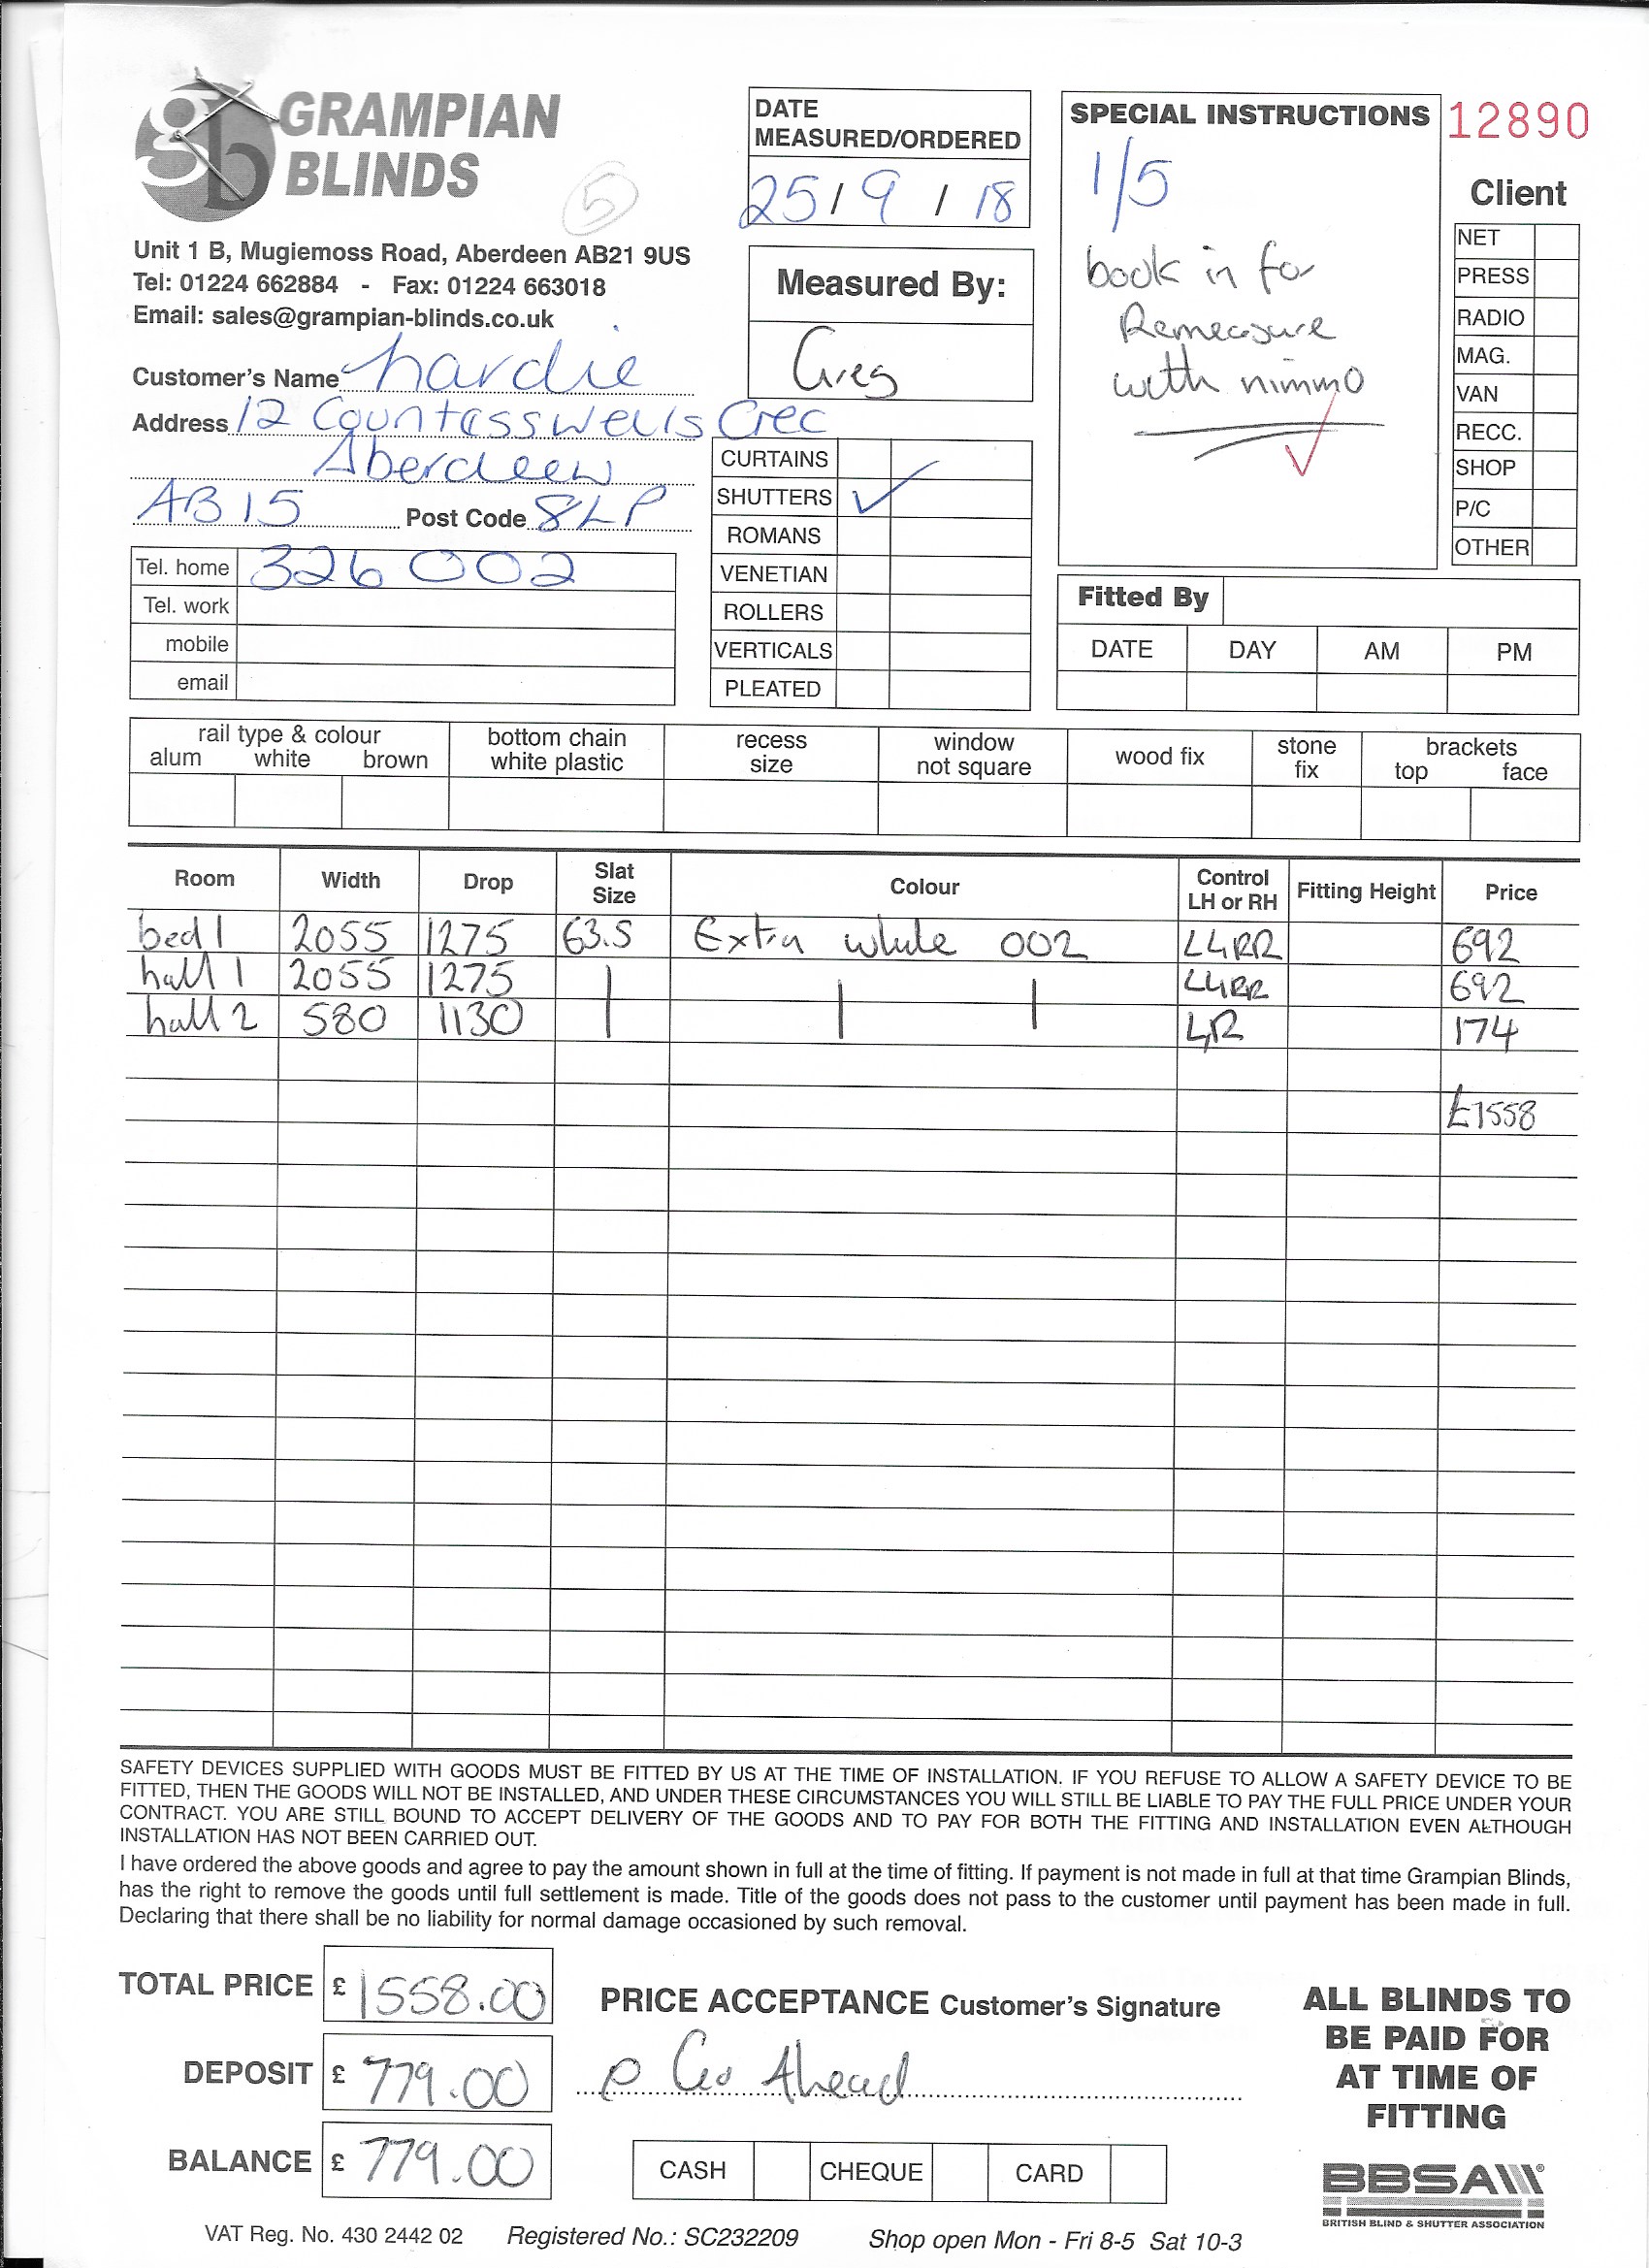 GRAMPIAN
BLINDS
5
Unit 1 B, Mugiemoss Road, Aberdeen AB21 9US
Tel: 01224 662884 - Fax: 01224 663018
Email: sales@grampian-blinds.co.uk
Customer's Name hardie
Address 12 Countasswells Crec
Aberdeen
AB15 Post Code 8LP
Tel. home 326002
Tel. work
mobile
email
DATE
MEASURED/ORDERED
25/9/18
Measured By:
Greg
CURTAINS
SHUTTERS ✓
ROMANS
VENETIAN
ROLLERS
VERTICALS
PLEATED
SPECIAL INSTRUCTIONS
1/5
book in for
Remeasure
with nimmo
✓
12890
Client
NET
PRESS
RADIO
MAG.
VAN
RECC.
SHOP
P/C
OTHER
Fitted By
DATE DAY AM PM
rail type & colour
alum white brown
bottom chain
white plastic
recess
size
window
not square
wood fix
stone
fix
brackets
top face
Room Width Drop Slat Size Colour Control LH or RH Fitting Height Price
bed 1 2055 1275 63.5 Extra white 002 L4RR 692
hall 1 2055 1275 L4RR 692
hall 2 580 1130 174
£1558
SAFETY DEVICES SUPPLIED WITH GOODS MUST BE FITTED BY US AT THE TIME OF INSTALLATION. IF YOU REFUSE TO ALLOW A SAFETY DEVICE TO BE
FITTED, THEN THE GOODS WILL NOT BE INSTALLED, AND UNDER THESE CIRCUMSTANCES YOU WILL STILL BE LIABLE TO PAY THE FULL PRICE UNDER YOUR
CONTRACT. YOU ARE STILL BOUND TO ACCEPT DELIVERY OF THE GOODS AND TO PAY FOR BOTH THE FITTING AND INSTALLATION EVEN ALTHOUGH
INSTALLATION HAS NOT BEEN CARRIED OUT.
I have ordered the above goods and agree to pay the amount shown in full at the time of fitting. If payment is not made in full at that time Grampian Blinds,
has the right to remove the goods until full settlement is made. Title of the goods does not pass to the customer until payment has been made in full.
Declaring that there shall be no liability for normal damage occasioned by such removal.
TOTAL PRICE £1558.00
DEPOSIT £779.00
BALANCE £779.00
PRICE ACCEPTANCE Customer's Signature
Go Ahead
CASH CHEQUE CARD
ALL BLINDS TO
BE PAID FOR
AT TIME OF
FITTING
BBSA
BRITISH BLIND & SHUTTER ASSOCIATION
VAT Reg. No. 430 2442 02 Registered No.: SC232209 Shop open Mon - Fri 8-5 Sat 10-3